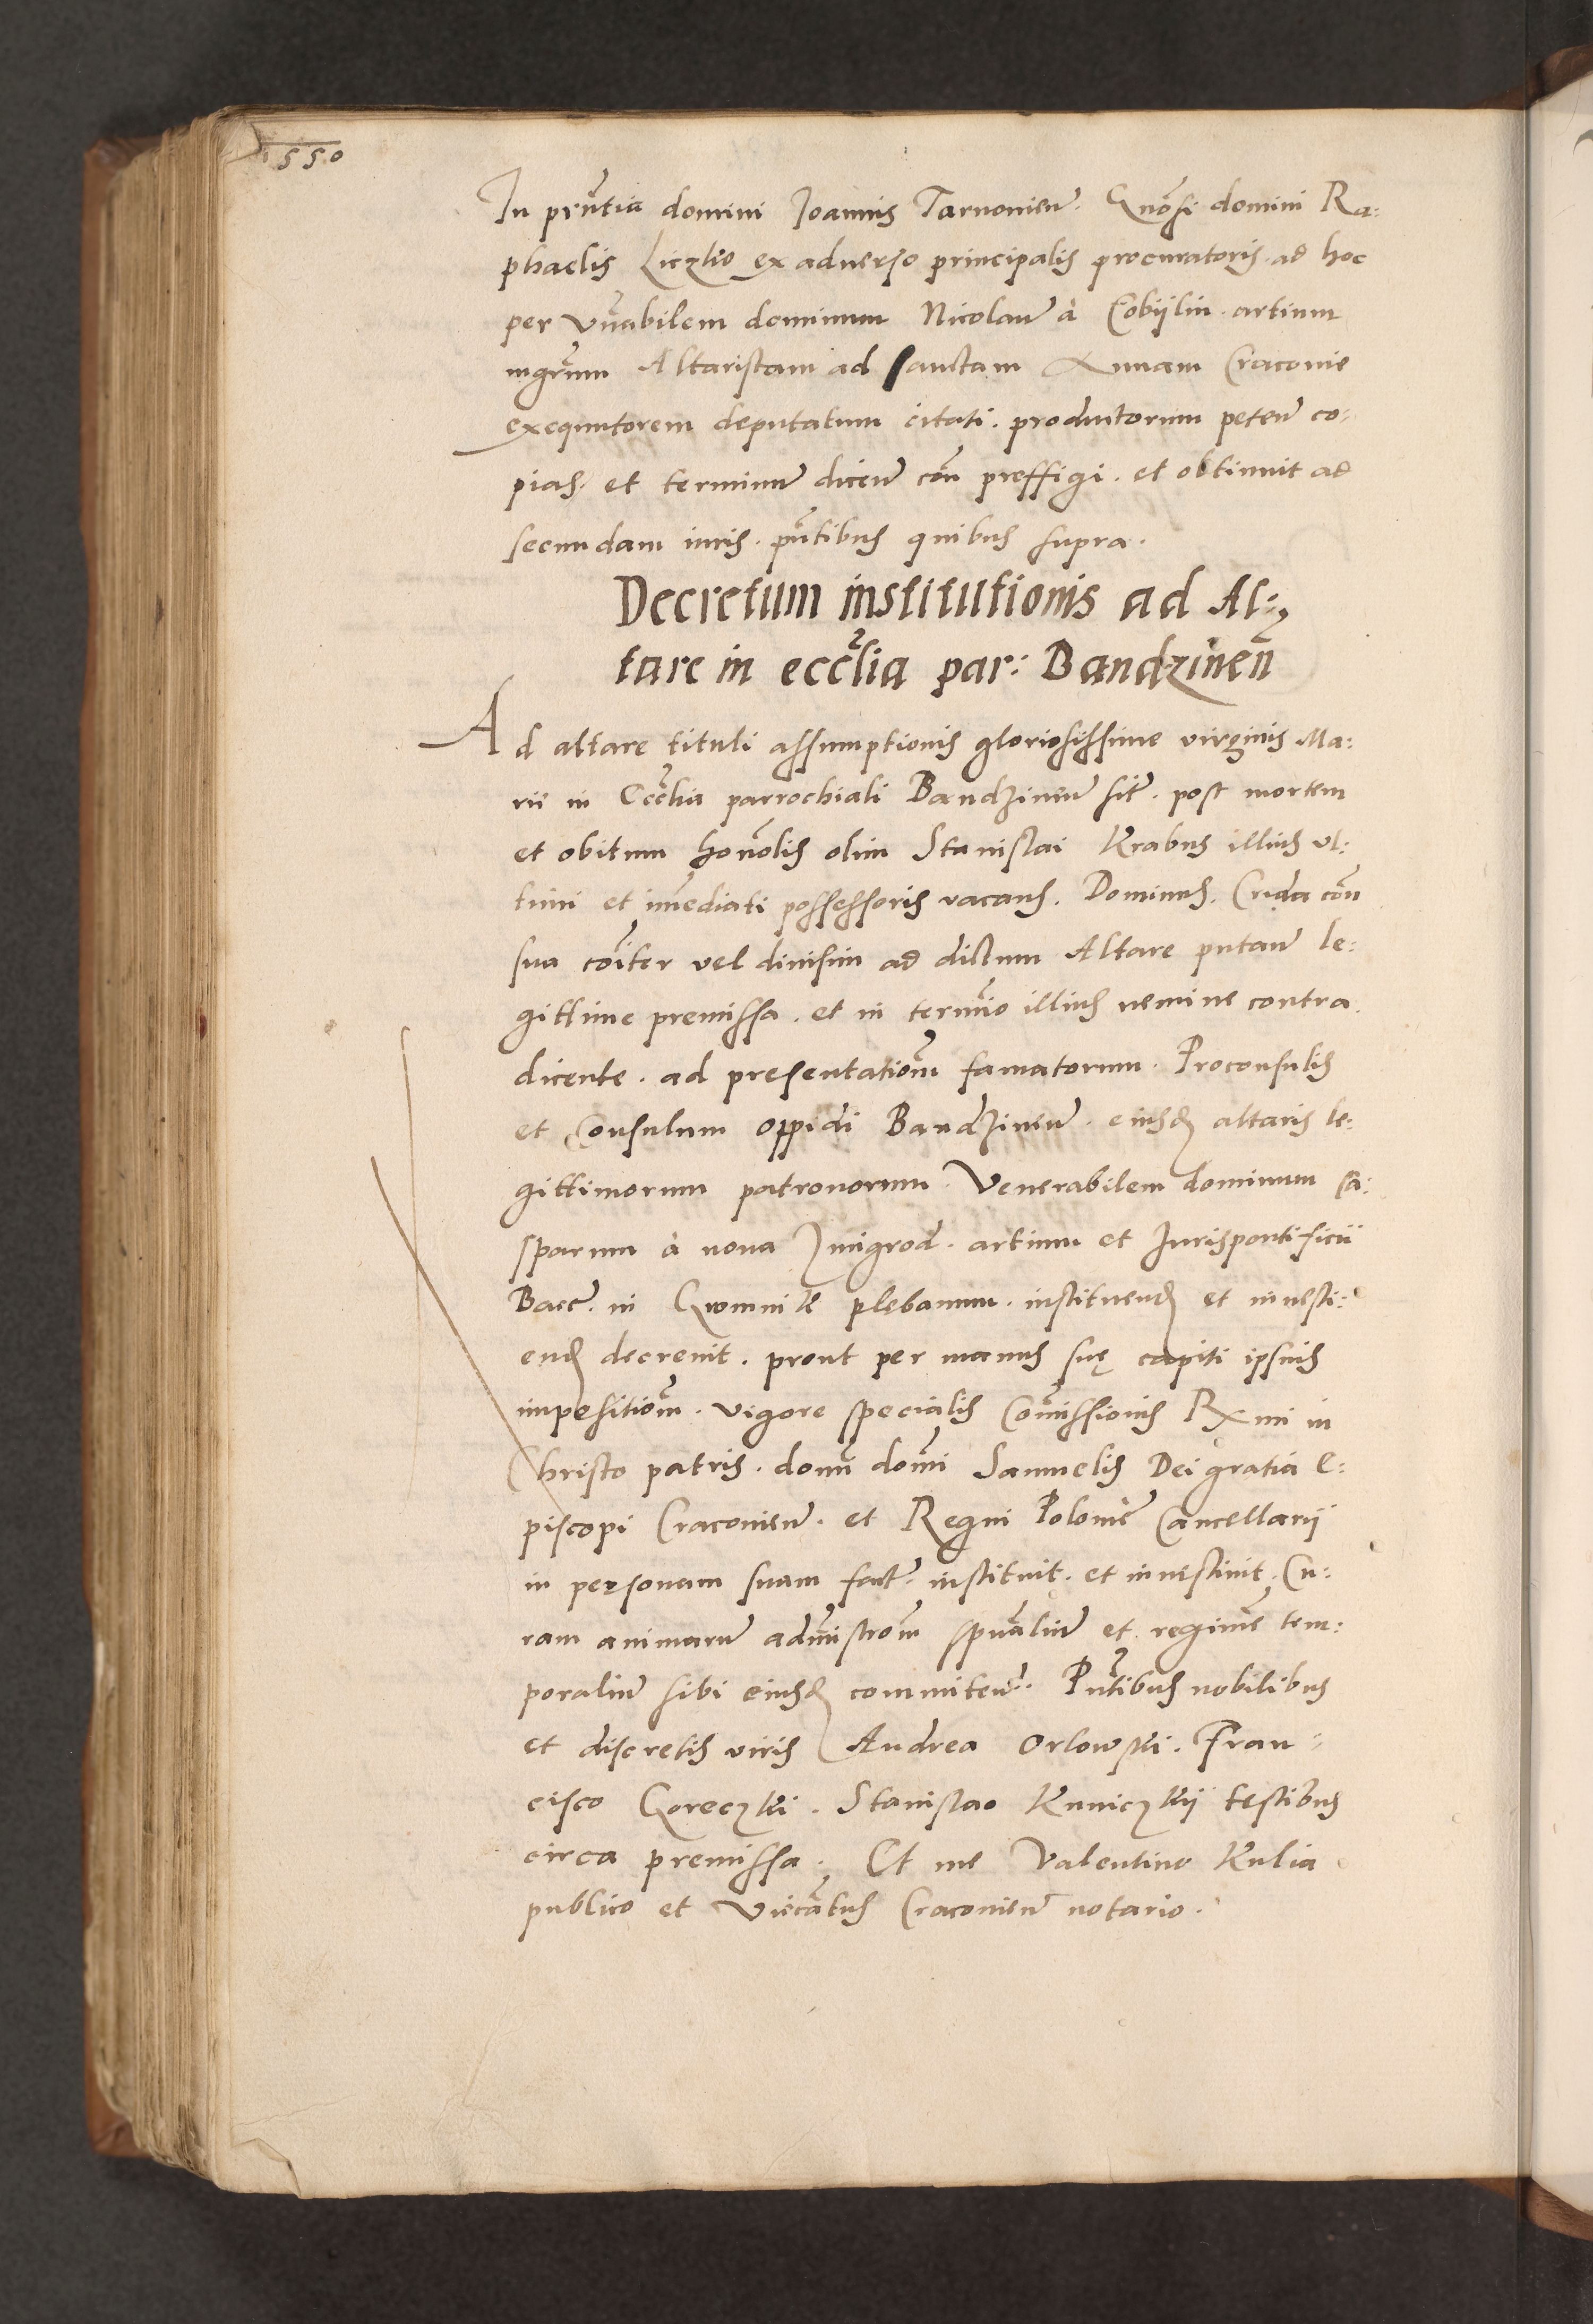 1550
In prñtia domini Joannis Tarnonieñ. Gnõsi domini Ra:
phaelis Liczko ex adverso principalis procuratoris ad hoc
per vñabilem dominum Nicolaũ à Cobijlin artium
mgr̃um Altaristam ad sanctam Annam Cracovie
exequutorem deputatum citati. productorum peteñ co:
pias. et terminũ diceñ cõn preffigi. et obtinuit ad
secundam iuris. pñtibus quibus supra.
Decretum institutionis ad Al:
tare in eccl̃ia par: Bandzineñ
Ad altare tituli assumptionis gloriosissime virginis Ma:
rii in Eccl̃ia parrochiali Bandzineñ sit̃. post mortem
et obitum honõlis olim Stanislai Krabus illius ul:
timi et im̃ediati possessoris vacans. Dominus. Crida cõn
sua cõiter vel divisim ad dictum Altare putañ le:
gittime premissa. et in termĩo illius nemine contra
dicente. ad presentatiom̃ famatorum. Proconsulis
et Consulum oppidi Bandzineñ. eiusd altaris le:
gittimorum patronorum. Venerabilem dominum Ca:
sparum à nova Zmigrod. artium et Jurispontificii
Bacc̃. in plebanum. instituend et investi:
end decrevit. prout per manus suę capiti ipsius
impositiom̃. vigore specialis Com̃issionis Rxmi in
Christo patris. domĩ domĩ Samuelis Dei gratia E:
piscopi Cracovieñ. et Regni Polonie Cancellarij
in personam suam fact̃. instituit. et investivit. Cu:
ram animarũ adm̃istrom̃ spũaliũ et regimẽ tem:
poraliũ sibi eiusd commiteñ. Pñtibus nobilibus
et discretis viris Andrea Orlowski. Fran:
cisco Goreczki. Stanislao Kuniczkij testibus
circa premissa. Et me Valentino Kulia
publico et Vicc̃atus Cracovieñ notario.